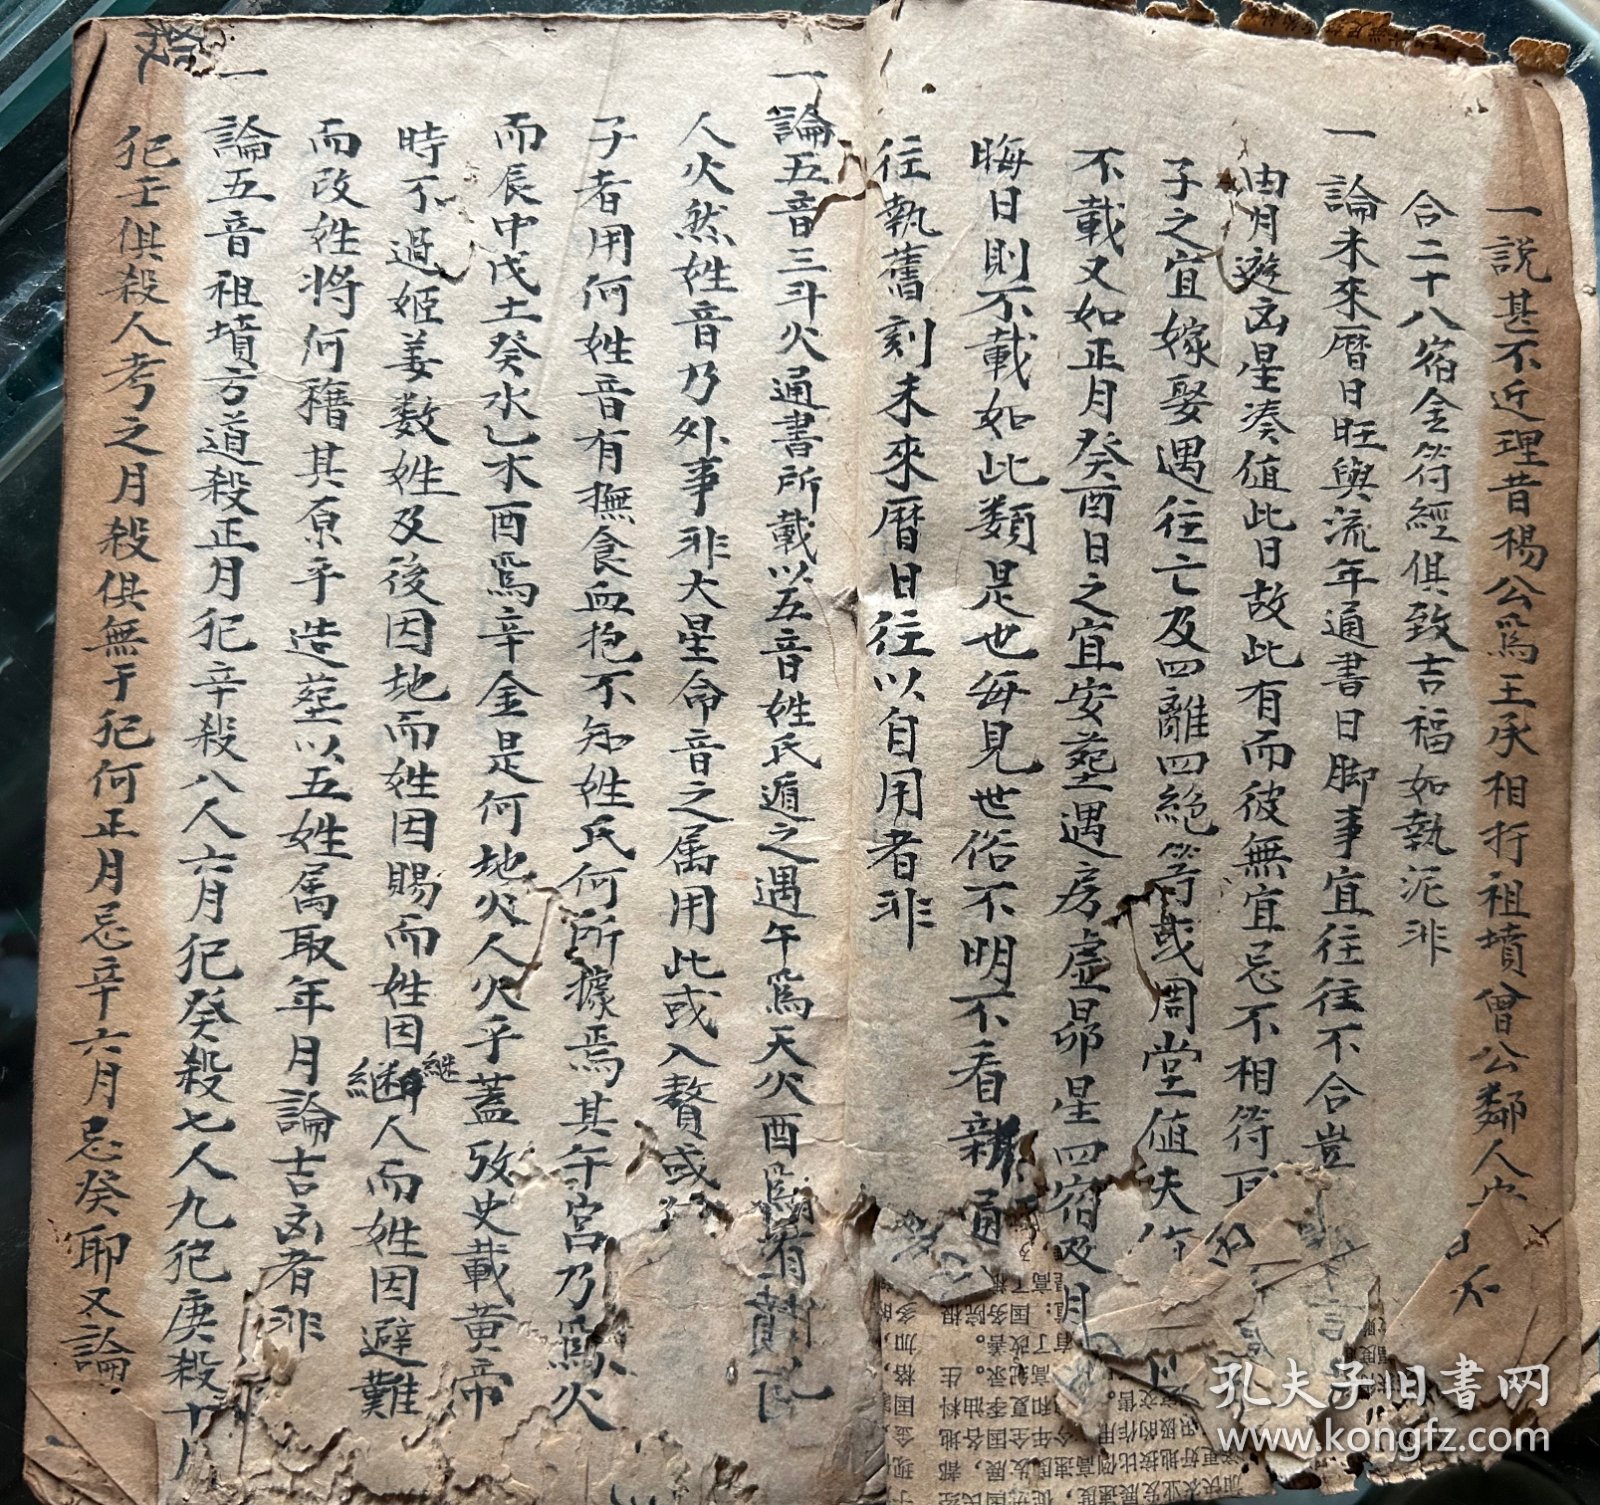 一説甚不近理昔楊公爲王承相扦祖墳曾公鄰人
合二十八宿金符經俱致吉福如執泥非
一論未來曆日旺與流年通書日脚事宜往往不合豈
由月遊凶星湊值此日故此有而彼無宜忌不相符
子之宜嫁娶遇往亡及四離四絶等或周堂值夫
不載又如正月癸酉日之宜安塟遇房虛昴星四宿及月
晦日則不載如此類是也每見世俗不明不看新通
往執舊刻未來曆日往以自用者非
一論五音三斗火通書所載以五音姓氏遁之遇午爲天火酉爲
人火然姓音乃外事非大星命音之属用此或入贅或
子者用何姓音有撫食血抱不知姓氏何所據焉其午宮乃爲火
而辰中戊土癸水乙木酉爲辛金是何地火人火乎蓋攷史載黄帝
時不過姬姜数姓及後因地而姓因賜而姓因繼人而姓因避難
繼
而改姓將何稽其原乎造塟以五姓属取年月論吉凶者非
一論五音祖墳方道殺正月犯辛殺八人六月犯癸殺七人九犯庚殺十
犯壬俱殺人考之月殺俱無于犯何正月忌辛六月忌癸耶又論
孔夫子旧書网
www.kongfz.com